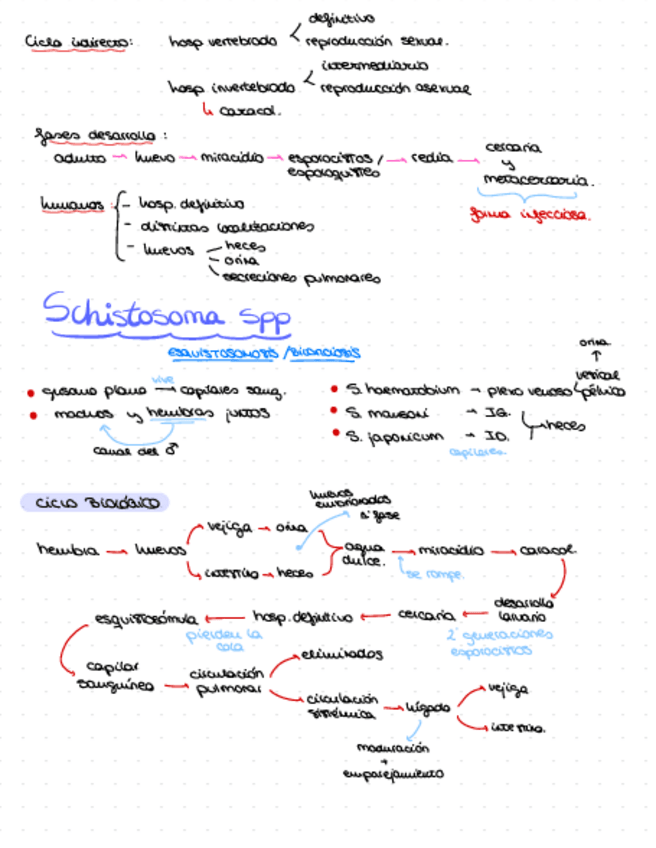 Ciclo indirecto: hosp vertebrado < definitivo
reproducción sexual.
hosp invertebrado < intermediario
reproducción asexual
↳ caracol.
fases desarrollo:
adulto → huevo → miracidio → esporocistos / → redia → cercaria
y
metacercaria.
forma infecciosa.
humanos: - hosp. definitivo
- distintas localizaciones
- huevos - heces
- orina
- secreciones pulmonares
Schistosoma spp
ESQUISTOSOMOSIS / BILHARZIOSIS
• gusano plano vive → capilares sang.
• machos y hembras juntos
canal del ♂
• S. haematobium → plexo venoso vesical → orina
pélvico
• S. mansoni → IG.
• S. japonicum → ID.
heces
capilares.
CICLO BIOLÓGICO
hembra → huevos
vejiga → orina
intestino → heces
huevos
embrionados
agua
dulce. → miracidio → caracol
se rompe.
desarrollo
larvario
2 generaciones
esporocistos
esquistosómula ← hosp. definitivo ← cercaria ←
pierden la
cola
capilar
sanguíneo → circulación
pulmonar
eliminados
circulación
sistémica → hígado
vejiga
intestino.
maduración
+
emparejamiento